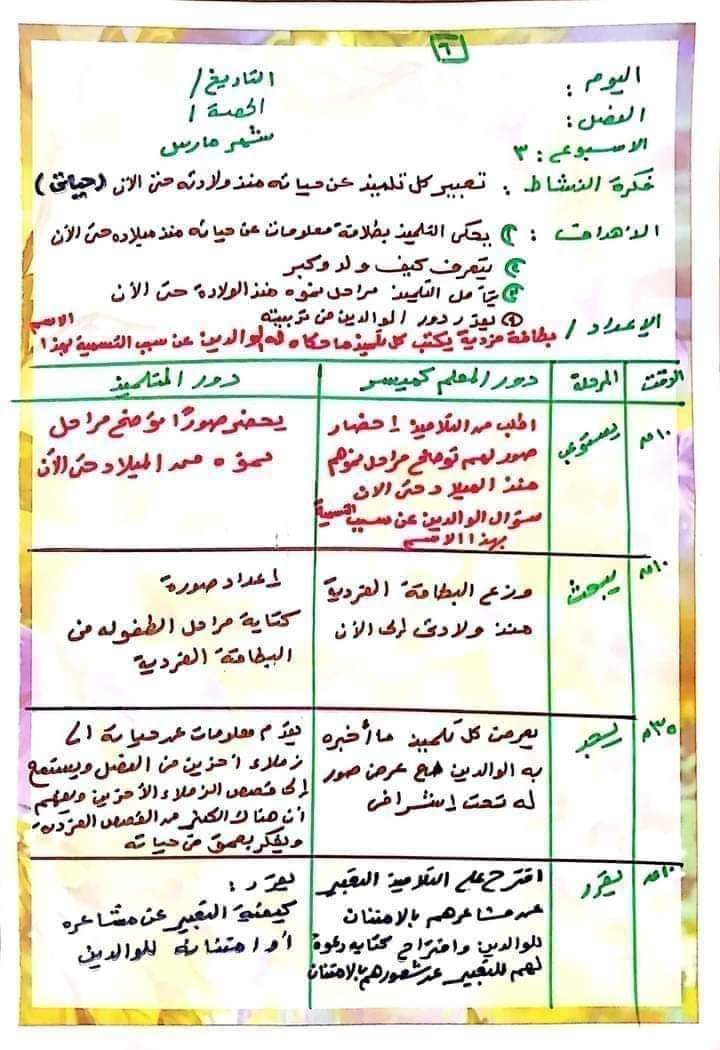 ٦
اليوم : التاريخ /
الفصل : الحصة /
الاسبوع : ٣ شهر مارس
فكرة النشاط : تعبير كل تلميذ عن حياته منذ ولادته حتى الآن (حياتى)
الاهداف : ١ يحكى التلميذ بطاقة معلومات عن حياته منذ ميلاده حتى الآن
٢ يتعرف كيف ولد وكبر
٣ يتأمل التلميذ مراحل نموه منذ الولادة حتى الآن
٤ يقدر دور الوالدين فى تربيته
الإعداد / بطاقة فردية يكتب كل تلميذ ما حكاه له الوالدين عن سبب التسمية بهذا الاسم
الوقت المرحلة دور المعلم كميسر دور المتلميذ
١٠ م يستوعب
اطلب من التلاميذ احضار
صور لهم توضح مراحل نموهم
منذ الميلاد حتى الان
سئوال الوالدين عن سبب التسمية
بهذا الاسم
يحضر صورًا توضح مراحل
نموه منذ الميلاد حتى الآن
١٠ م يبحث
وزع البطاقة الفردية
منذ ولادتى إلى الآن
إعداد صورة
كتابة مراحل الطفوله فى
البطاقة الفردية
٣٥ م
يعرض كل تلميذ ما أخبره
به الوالدين مع عرض صور
له تحت إشراف
يقدم معلومات عن حياته الى
زملاء أخرين فى الفصل ويستمع
إلى قصص الزملاء الأخرين ويفهم
أن هناك الكثير من القصص الفردية
ويفكر بعمق فى حياته
١٠ م يقرر
اقترح على التلاميذ التعبير
عن مشاعرهم بالامتنان
للوالدين واقتراح كتابه دعوة
لهم للتعبير عن شعورهم بالامتنان
يقرر :
كيفية التعبير عن مشاعره
أو امتنانه للوالدين